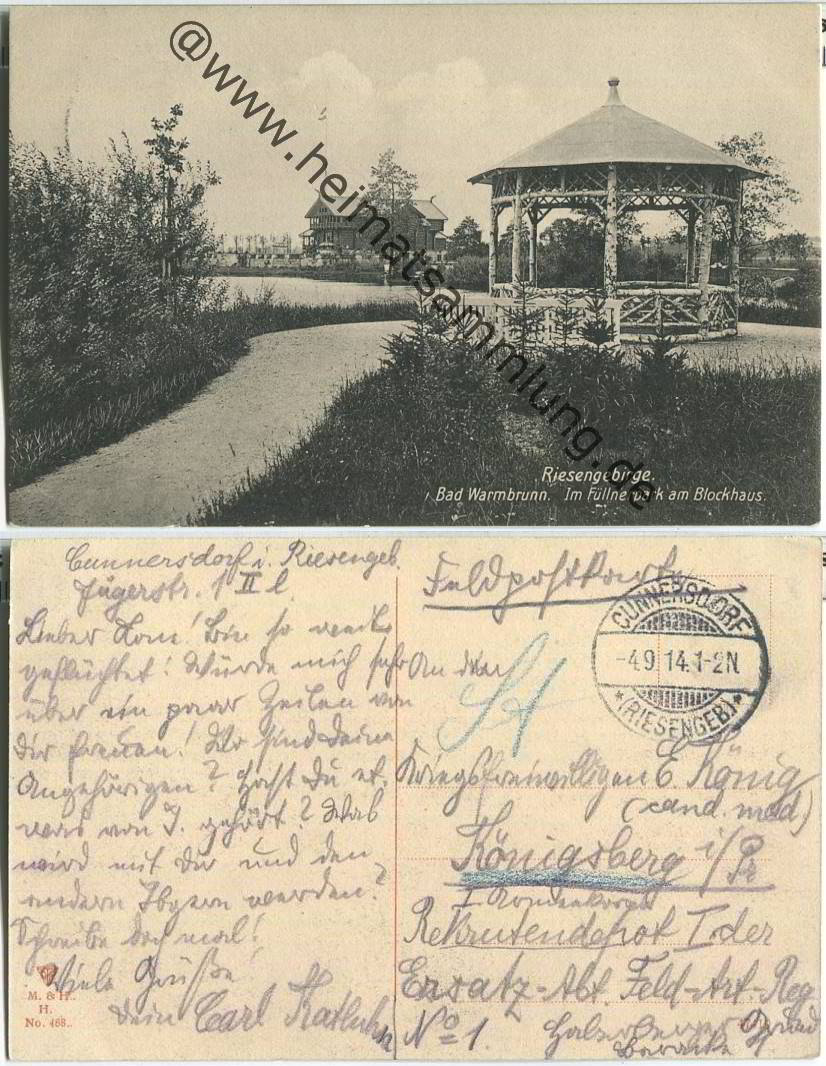 @www.heimatsammlung.de
Riesengebirge.
Bad Warmbrunn. Im Füllnerpark am Blockhaus.
Cunnersdorf i. Riesengeb.
Jägerstr. 1 II l.
Lieber Kom! Bin so weit
geflüchtet! Würde mich sehr
über ein paar Zeilen von
Dir freuen! Wo sind Deine
Angehörigen? Hast Du et.
was von J. gehört? Was
wird mit Dir und den
andern werden?
Schreibe doch mal!
Viele Grüße!
Dein Carl
M. & H..
H.
No. 468..
Feldpostkarte
CUNNERSDORF
-4.9.14.1-2N.
*(RIESENGEB.)*
An den
Kriegsfreiwilligen E. König
(cand. med)
Königsberg i/Pr
Rekrutendepot I. der
Ersatz-Abt. Feld-Art.-Reg
No 1. Haberberger Grund
Baracke